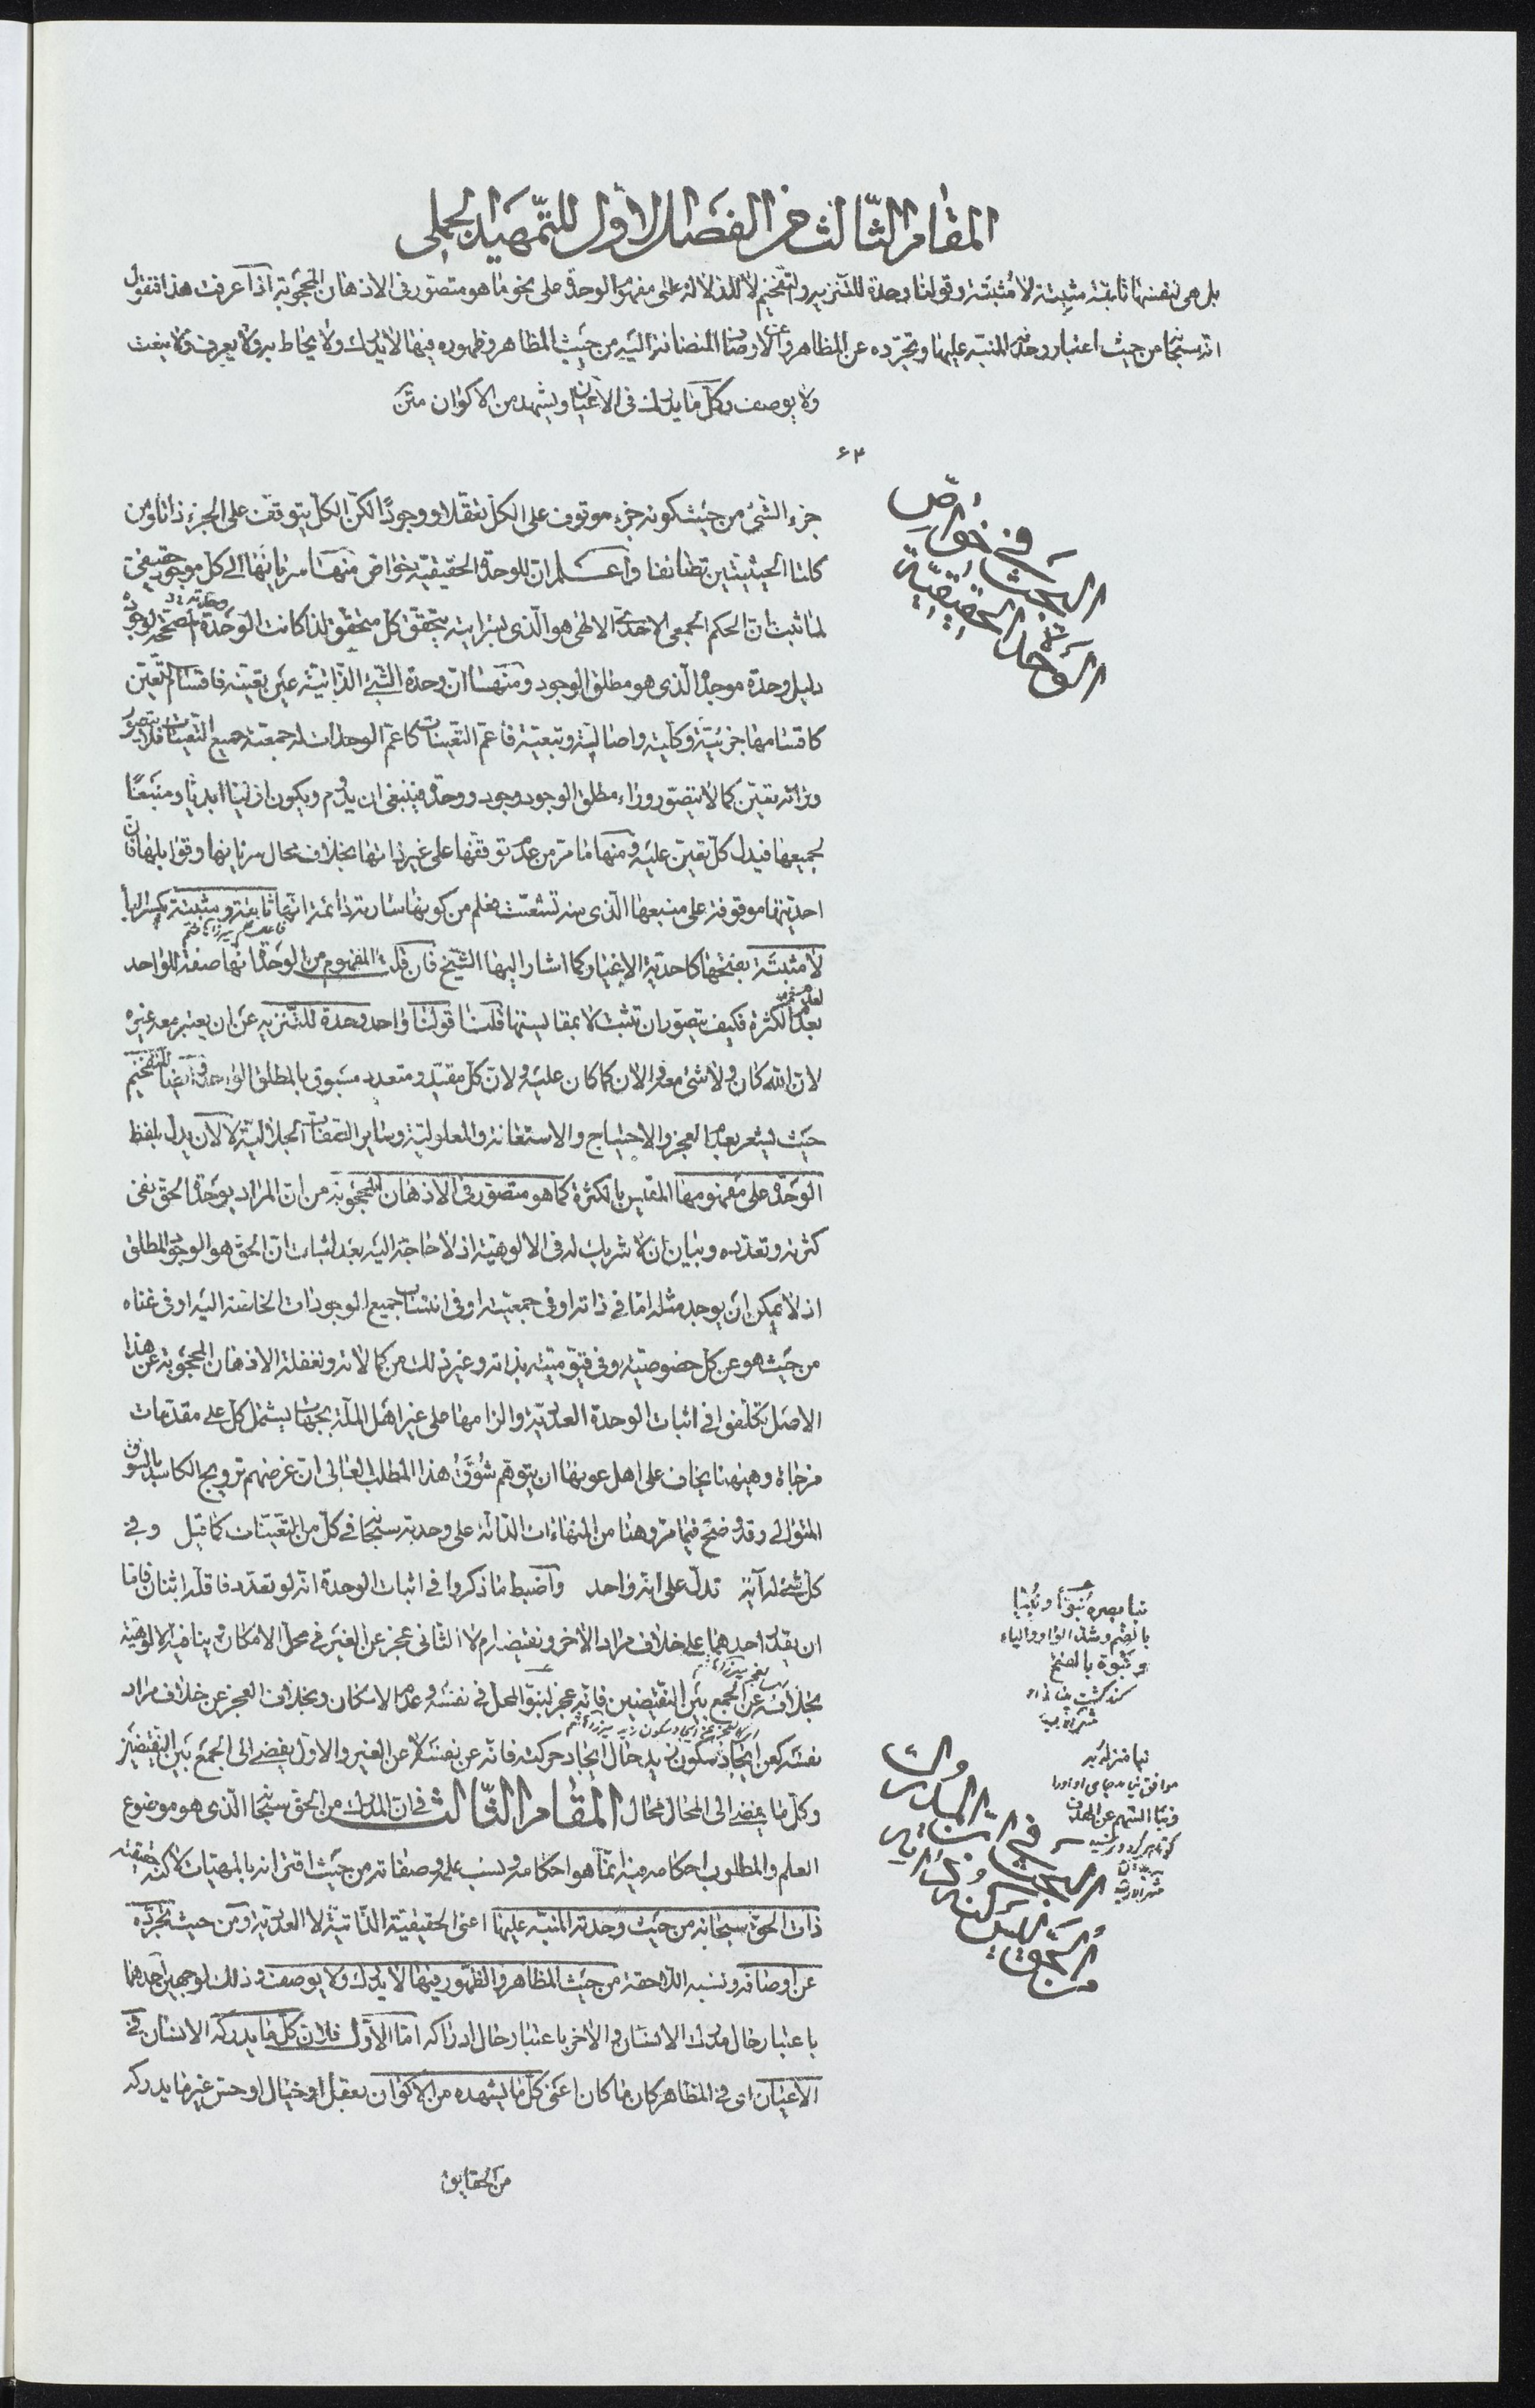 المقام الثالث من الفصل الأول للتمهيد الجملى
بل هى لنفسها ثابتة مثبِتة لا مُثبَتة وقولنا وحدة للتنزيه والتفخيم لا للدلالة على مفهوم الوحدة على نحو ما هو متصور فى الاذهان المحجوبة اذا عرفت هذا فنقول
انه سبحانه من حيث اعتبار وحدته المنبه عليها وتجرده عن المظاهر وعن الاوصاف المضافة اليه من حيث المظاهر وظهوره فيها لا يدرك ولا يحاط به ولا يعرف ولا ينعت
ولا يوصف وكل ما يدرك فى الاعيان ويشهد من الاكوان متن
۶۴
جزء الشئ من حيث كونه جزء موقوف على الكل تعقلا ووجودًا لكن الكل يتوقف على الجزء ذاتا ومن
كلتا الحيثيتين تضائفا واعلم ان للوحدة الحقيقية خواص منها سرايتها الى كل موجود حقيقى
لما ثبت ان الحكم الجمعى الاحدى الالهى هو الذى بسرايته يتحقق كل متحقق لذا كانت الوحدة
دليل وحدة موجده الذى هو مطلق الوجود ومنها ان وحدة الشئ الذاتية عين تعينه فاقسام التعين
كاقسامها جزئية وكلية واصالية وتبعية فأعم التعينات كاعم الوحدات له جمعية جميع التعينات فلا يتصور
ورائه تعين كما لا يتصور وراء مطلق الوجود وجود ووحدة فينبغى ان يدوم ويكون ازليا ابديا ومنبعًا
لجميعها فيدل كل تعين عليه ومنها ما مر من عدم توقفها على غير ذاتها بخلاف محال سرايتها وقوابلها فان
احديتها موقوفة على منبعها الذى منه تشعبت فعلم من كونها سارية دائمة انها ثابتة ومثبتة بكسر الباء
لا مثبتة بفتحها كاحدية الاغيار كما اشار اليها الشيخ فان قلت المفهوم من الوحدة انها صفة للواحد
بعدم الكثرة فكيف يتصور ان تثبت لا بمقايستها قلنا قولنا واحد وحدة للتنزيه عن ان يعتبر معه غيره
لان الله كان ولا شئ معه والان كما كان عليه ولان كل مقيد ومتعدد مسبوق بالمطلق الواحد وايضا للتفخيم
حيث يشعر بعدم العجز والاحتياج والاستعانة والمعلولية وساير الصفات الجلالية لا لان يدل بلفظ
الوحدة على مفهومها المقيس بالكثرة كما هو متصور فى الاذهان المحجوبة من ان المراد بوحدة الحق نفى
كثرته وتعدده وبيان ان لا شريك له فى الالوهية اذ لا حاجة اليه بعد اثبات ان الحق هو الوجود المطلق
اذ لا يمكن ان يوجد مثله اما فى ذاته او فى جمعيته او فى انتساب جميع الوجودات الخاصة اليه او فى غناه
من حيث هو عن كل خصوصية وفى قيوميته بذاته وغير ذلك من كمالاته ولغفلة الاذهان المحجوبة عن هذا
الاصل تكلفوا فى اثبات الوحدة العددية والزامها على غير اهل الملة بجهات يشتمل كل على مقدمات
مزجاة وههنا يخاف على اهل عوبها ان يتوهم سُوَّقُ هذا المطلب العالى ان غرضهم ترويج الكاسد بالسوق
المتوالى وقد وضح فيما مر وهنا من المنهاءات الدالة على وحدته سبحانه فى كل من التعينات كما قيل وفى
كل شئ له آية تدل على انه واحد واضبط ما ذكروا فى اثبات الوحدة انه لو تعدد فاقله اثنان فاما
ان يقدر احدهما على خلاف مراد الآخر ونقيضه ام لا الثانى عجز عن الغير فى محل الامكان وينافيه الالوهية
بخلافه عن الجمع بين النقيضين فانه عجز لنبو المحل فى نفسه وعدم الامكان وبخلاف العجز عن خلاف مراد
نفسه كعن ايجاد سكون زيد حال ايجاد حركته فانه عن نفسه لا عن الغير والاول يفضى الى الجمع بين النقيضين
وكل ما يفضى الى المحال محال المقام الثالث فى ان المدرك من الحق سبحانه الذى هو موضوع
العلم والمطلوب احكامه فيه انما هو احكامه ونسب علمه وصفاته من حيث اقترانه بالمهيات لا كنه حقيقته
ذات الحق سبحانه من حيث وحدته المنبه عليها اعنى الحقيقية الذاتية لا العددية ومن حيث تجرده
عن اوصافه ونسبه اللاحقة من حيث المظاهر والظهور فيها لا يدرك ولا يوصف وذلك لوجهين احدهما
باعتبار حال مدرك الانسان والآخر باعتبار حال ادراكه اما الاول فلان كل ما يدركه الانسان فى
الاعيان اى فى المظاهر كان ما كان اعنى كل ما يشهده من الاكوان بعقل او خيال او حس غير ما يدركه
من الحقايق
البحث فى خواص
الوحدة الحقيقية
نبا بصره نبوّا ونُبيّا
بالضم وشد الواو والياء
ونبوة بالفتح
نبا منزله به
ونبا السهم عن الهدف
البحث فى ان المدرك
من الحق ليس كنه ذاته